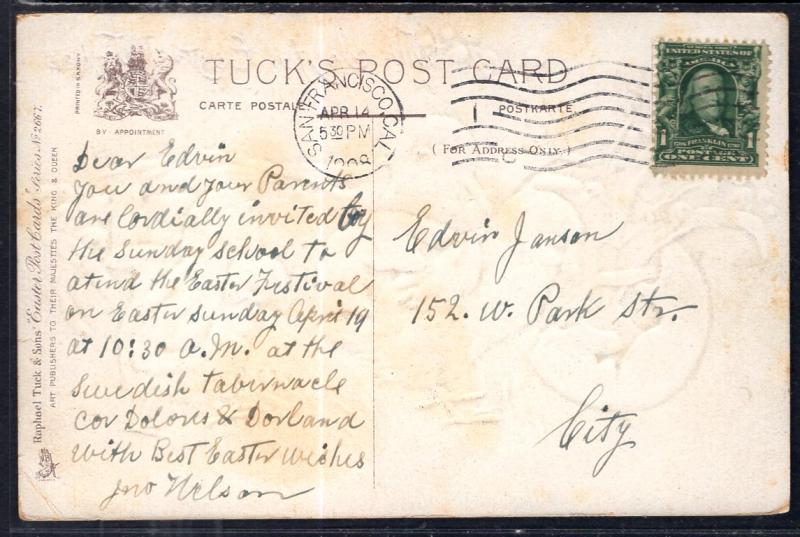 TUCK'S POST CARD
CARTE POSTALE
POSTKARTE
(FOR ADDRESS ONLY.)
BY APPOINTMENT
PRINTED IN SAXONY
Raphael Tuck & Sons' "Easter Post Cards" Series No 2667.
ART PUBLISHERS TO THEIR MAJESTIES THE KING & QUEEN
SAN FRANCISCO, CAL
APR 14
5 30 PM
1908
UNITED STATES OF
AMERICA
1 FRANKLIN 1
POSTAGE
ONE CENT
Dear Edvin
you and your Parents
are Cordially invited by
the Sunday school to
atend the Easter Festival
on Easter sunday April 19
at 10:30 A.M. at the
Swedish tabernacle
cor Dolores & Dorland
with Best Easter wishes
Jno Nelson
Edvin Janson
152. W. Park Str.
City